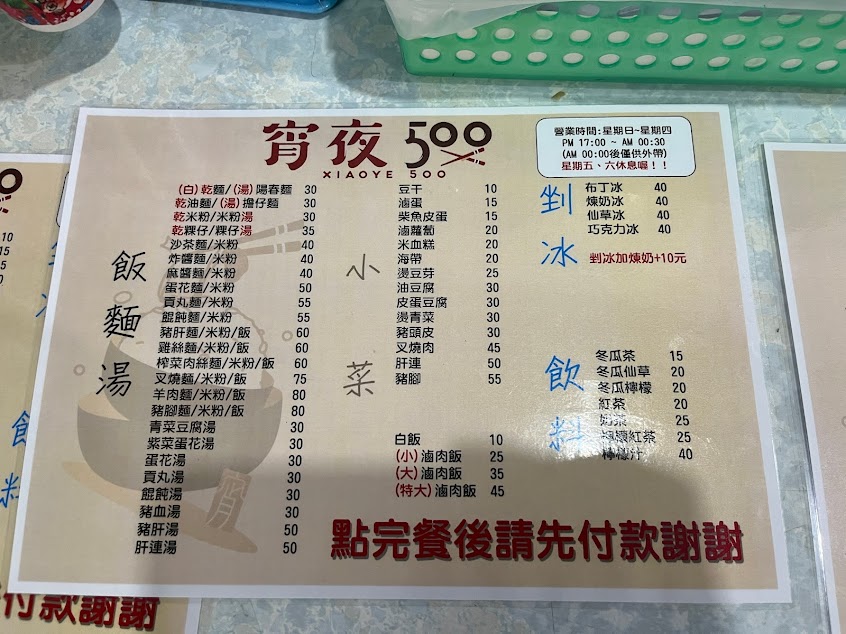 宵夜 500
XIAOYE 500
營業時間:星期日~星期四
PM 17:00 ~ AM 00:30
(AM 00:00後僅供外帶)
星期五、六休息喔!!
飯麵湯
(白)乾麵/(湯)陽春麵 30
乾油麵/(湯)擔仔麵 30
乾米粉/米粉湯 30
乾粿仔/粿仔湯 35
沙茶麵/米粉 40
炸醬麵/米粉 40
麻醬麵/米粉 40
蛋花麵/米粉 50
貢丸麵/米粉 55
餛飩麵/米粉 55
豬肝麵/米粉/飯 60
雞絲麵/米粉/飯 60
榨菜肉絲麵/米粉/飯 60
叉燒麵/米粉/飯 75
羊肉麵/米粉/飯 80
豬腳麵/米粉/飯 80
青菜豆腐湯 30
紫菜蛋花湯 30
蛋花湯 30
貢丸湯 30
餛飩湯 30
豬血湯 30
豬肝湯 50
肝連湯 50
宵
小菜
豆干 10
滷蛋 15
柴魚皮蛋 15
滷蘿蔔 20
米血糕 20
海帶 20
燙豆芽 25
油豆腐 30
皮蛋豆腐 30
燙青菜 30
豬頭皮 30
叉燒肉 45
肝連 50
豬腳 55
白飯 10
(小)滷肉飯 25
(大)滷肉飯 35
(特大)滷肉飯 45
剉冰
布丁冰 40
煉奶冰 40
仙草冰 40
巧克力冰 40
剉冰加煉奶+10元
飲料
冬瓜茶 15
冬瓜仙草 20
冬瓜檸檬 20
紅茶 20
奶茶 25
檸檬紅茶 25
檸檬汁 40
點完餐後請先付款謝謝
付款謝謝